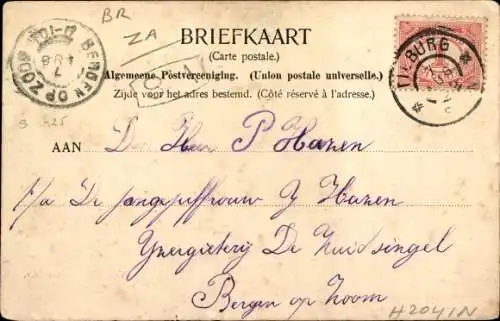 BR
ZA
BRIEFKAART
(Carte postale.)
Algemeene Postvereeniging. (Union postale universelle.)
Zijde voor het adres bestemd. (Côté réservé à l'adresse.)
BERGEN OP ZOOM
TILBURG
1
S 425
AAN Den Heer P Hazen
p/a De Jongejuffrouw J Hazen
Yzergieterij De Zuidsingel
Bergen op Zoom
H2041N